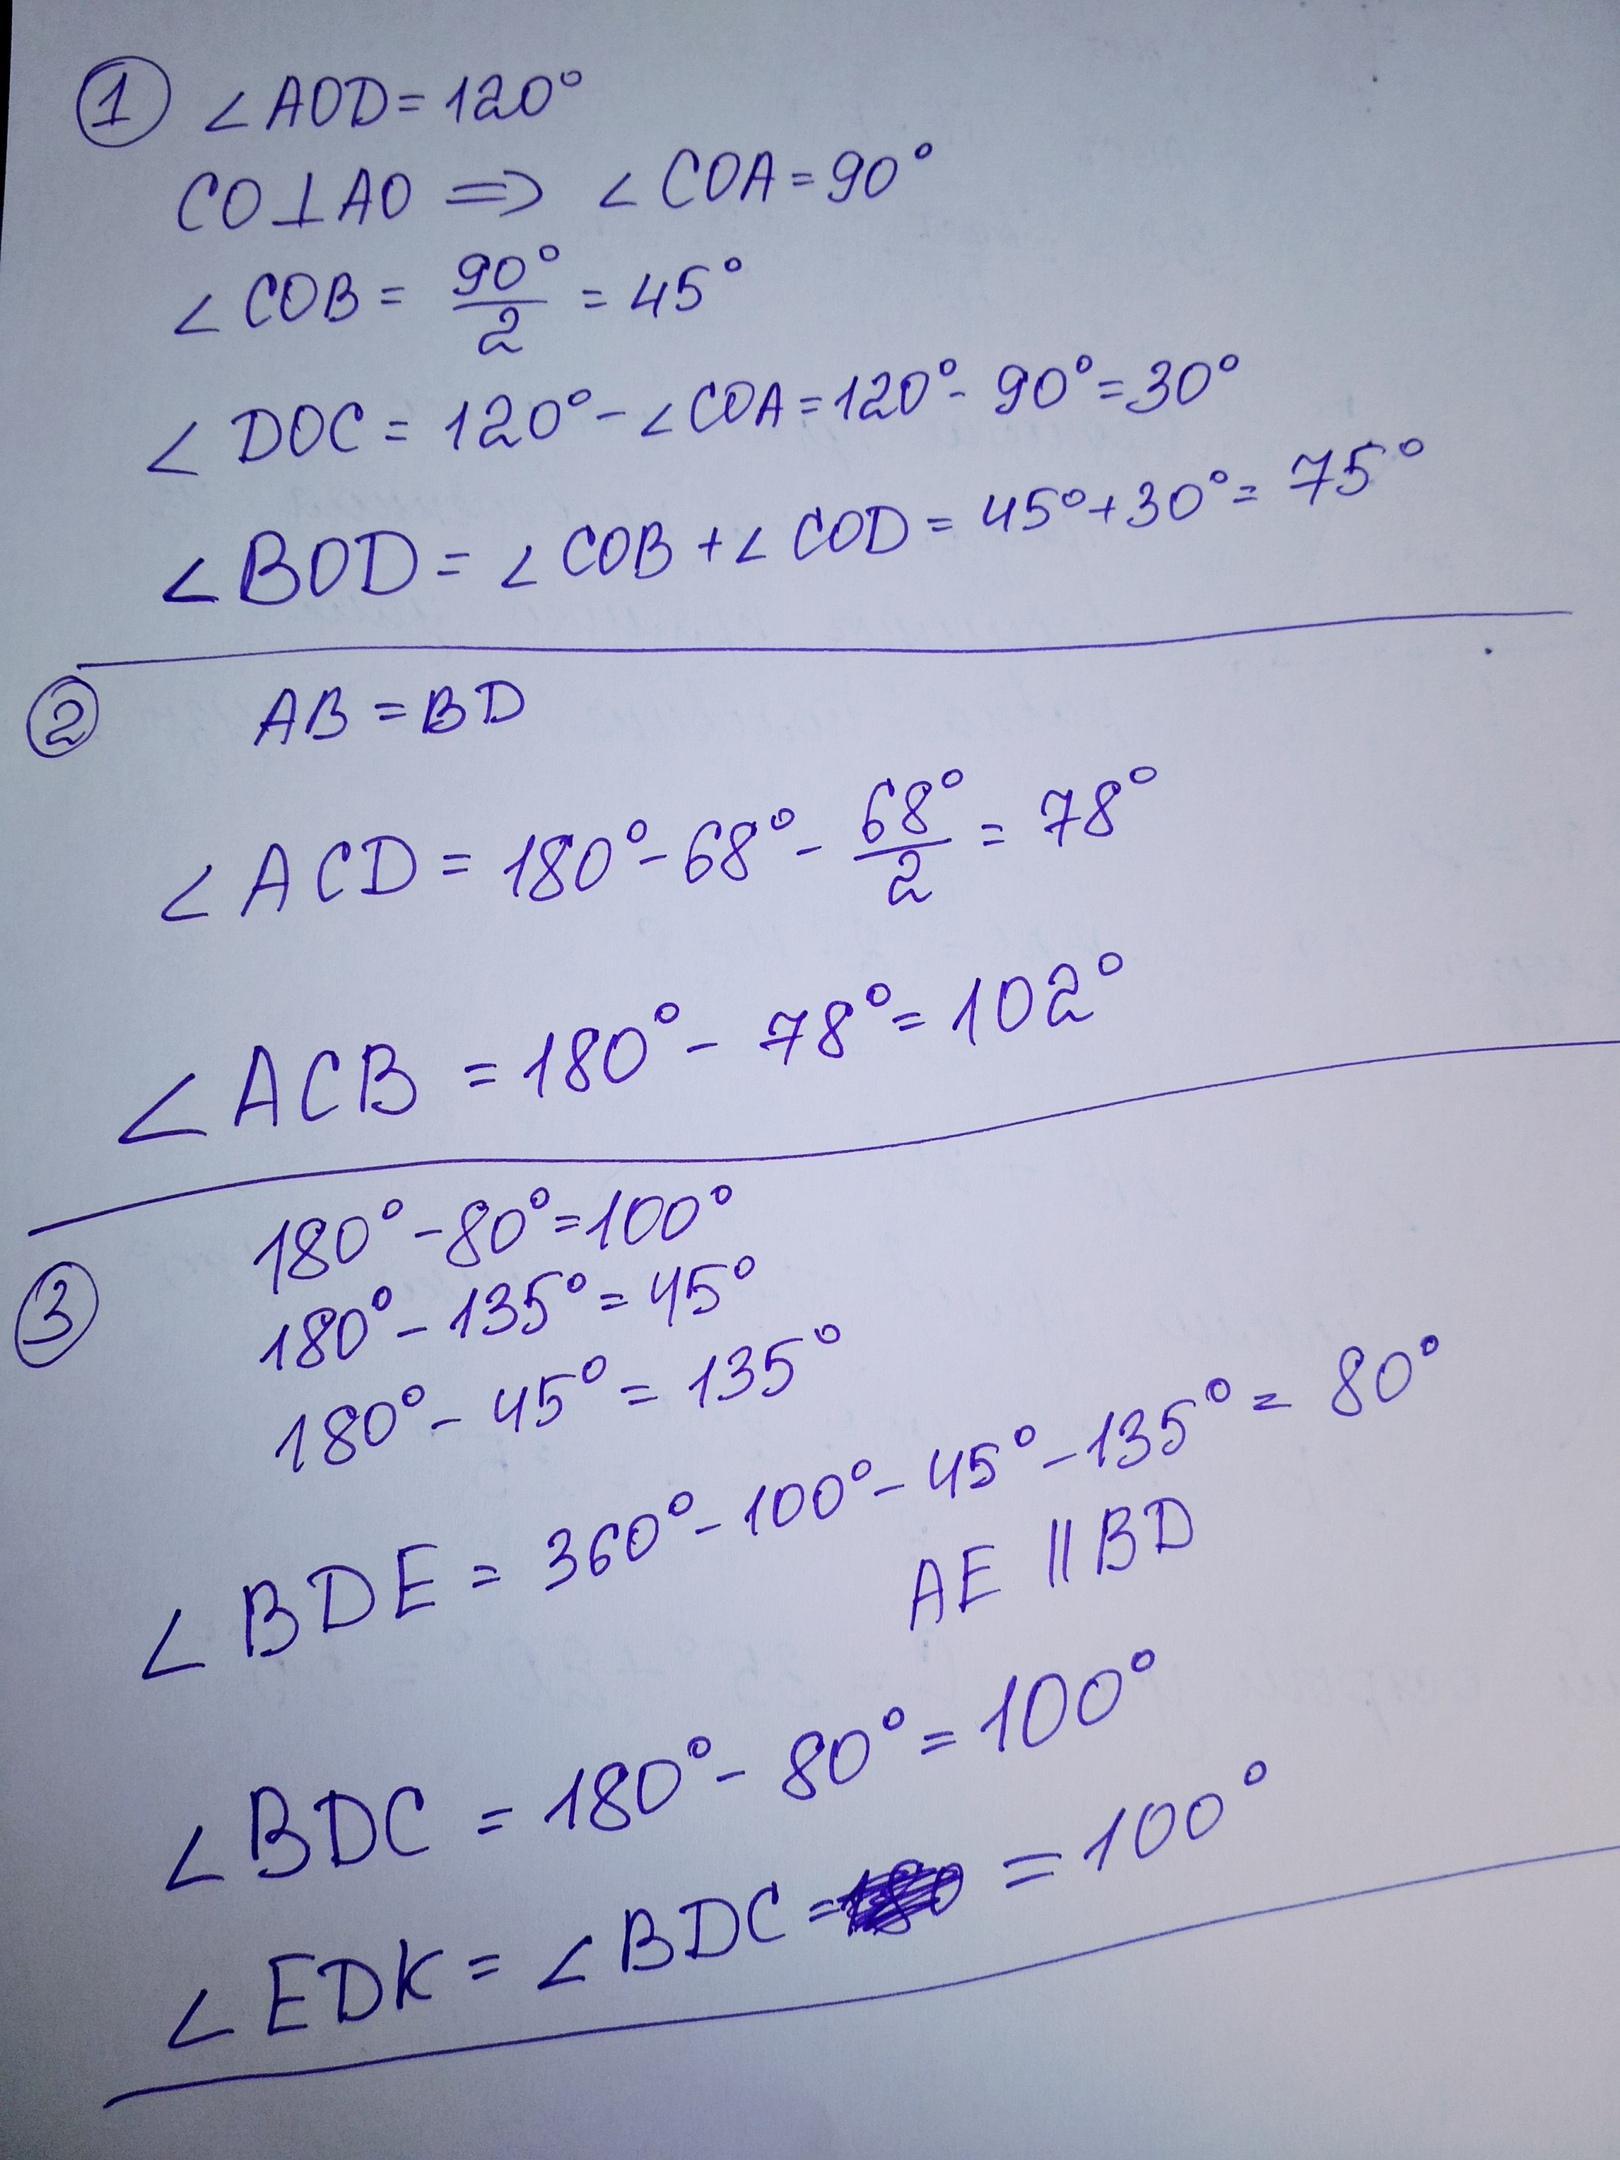 ① ∠AOD = 120°
CO⊥AO => ∠COA = 90°
∠COB = 90°/2 = 45°
∠DOC = 120° - ∠COA = 120° - 90° = 30°
∠BOD = ∠COB + ∠COD = 45° + 30° = 75°
② AB = BD
∠ACD = 180° - 68° - 68°/2 = 78°
∠ACB = 180° - 78° = 102°
③ 180° - 80° = 100°
180° - 135° = 45°
180° - 45° = 135°
∠BDE = 360° - 100° - 45° - 135° = 80°
AE || BD
∠BDC = 180° - 80° = 100°
∠EDK = ∠BDC = = 100°